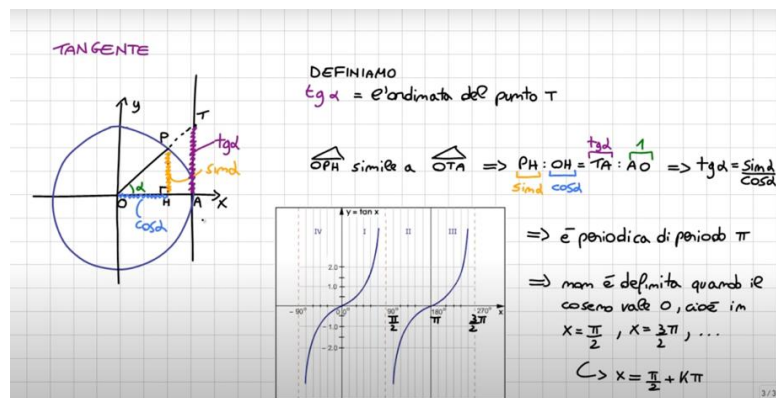 TANGENTE
y
P
T
tgα
sinα
α
O
H
A
x
cosα
DEFINIAMO
tgα = l'ordinata del punto T
OPH simile a OTA => PH : OH = TA : AO => tgα = sinα/cosα
sinα cosα tgα 1
y = tan x
IV I II III
2.0
1.0
-90° 0.0 90° 180° 270° x
π/2 π 3/2π
-1.0
-2.0
=> è periodica di periodo π
=> non è definita quando il
coseno vale 0, cioè in
x = π/2 , x = 3/2π , ...
↳ x = π/2 + Kπ
3/3